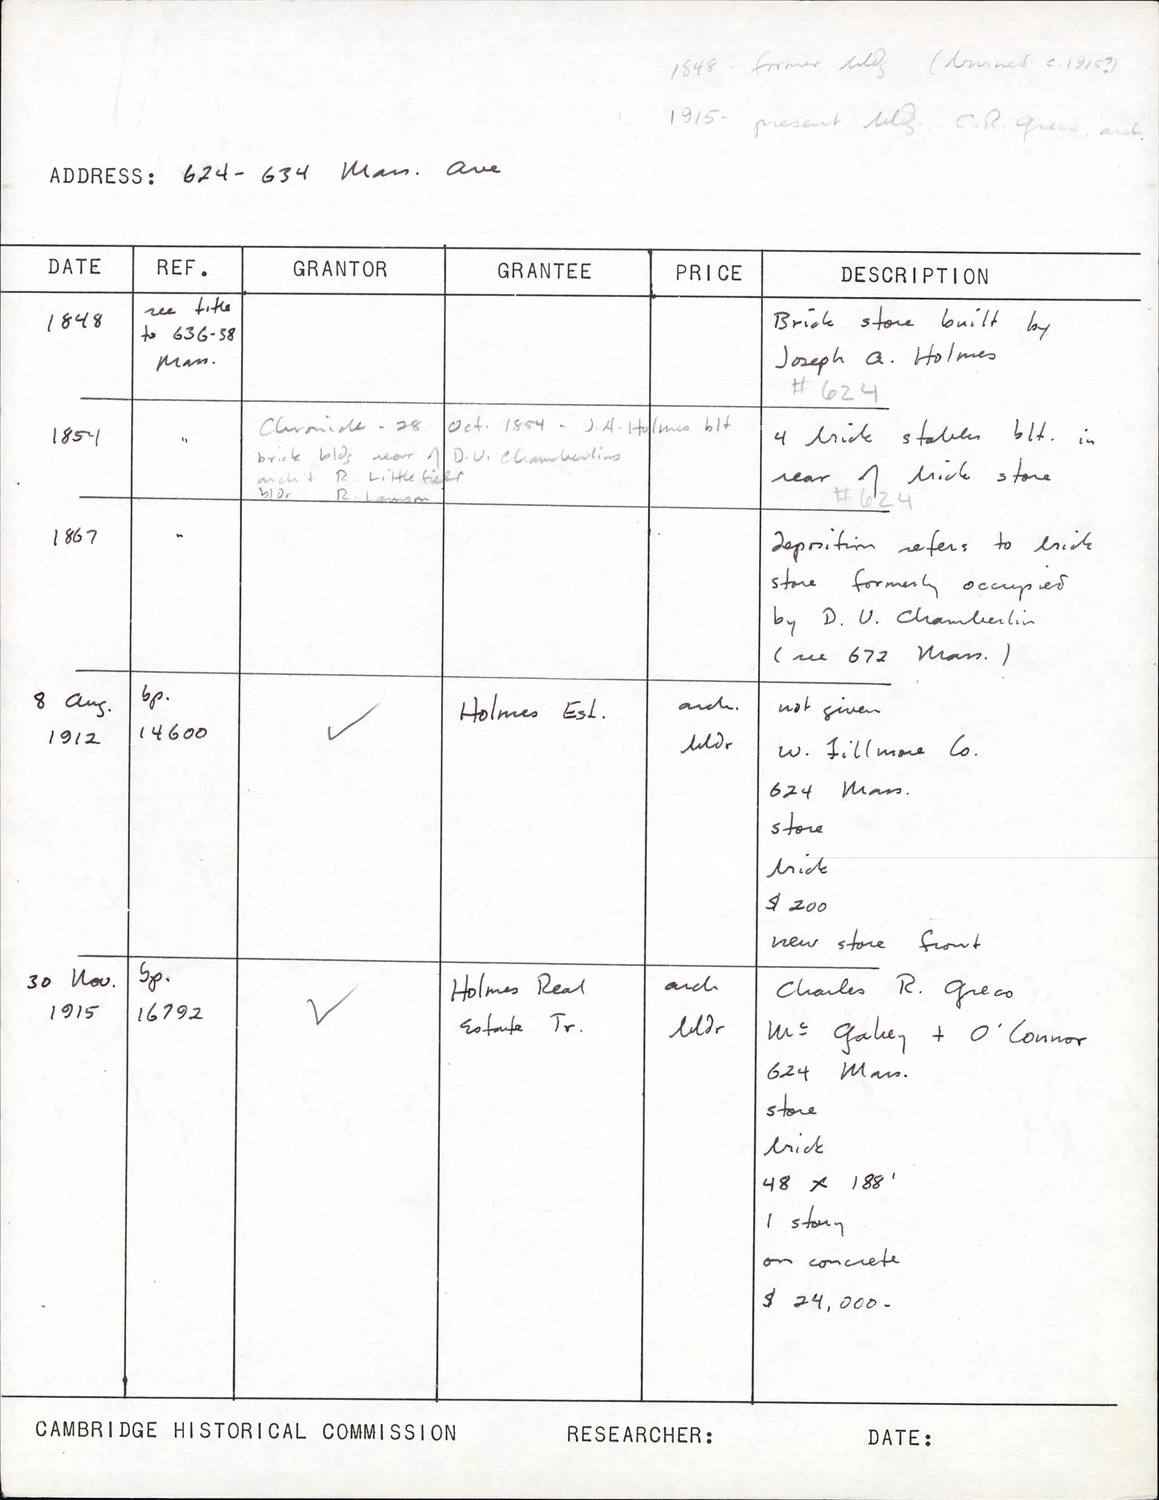 1848 - former bldg. (burned c. 1915?)
1915 - present bldg. C.R. Greco, arch.
ADDRESS: 624-634 Mass. Ave
DATE REF. GRANTOR GRANTEE PRICE DESCRIPTION
1848
see title
to 636-38
Mass.
Brick store built by
Joseph A. Holmes
# 624
1854
"
Chronicle - 28 Oct. 1854 - J.A. Holmes blt
brick bldg rear of D.U. Chamberlins
arch't R. Littlefield
bldr R. Lamson
4 brick stables blt. in
rear of brick store
# 624
1867
"
Deposition refers to brick
store formerly occupied
by D. U. Chamberlin
(see 672 Mass.)
8 Aug.
1912
bp.
14600
✓
Holmes Est.
arch.
bldr
not given
W. Fillmore Co.
624 Mass.
store
brick
$ 200
new store front
30 Nov.
1915
bp.
16792
✓
Holmes Real
Estate Tr.
arch
bldr
Charles R. Greco
Mc Gahey + O'Connor
624 Mass.
store
brick
48 x 188'
1 story
on concrete
$ 24,000-
CAMBRIDGE HISTORICAL COMMISSION RESEARCHER: DATE: